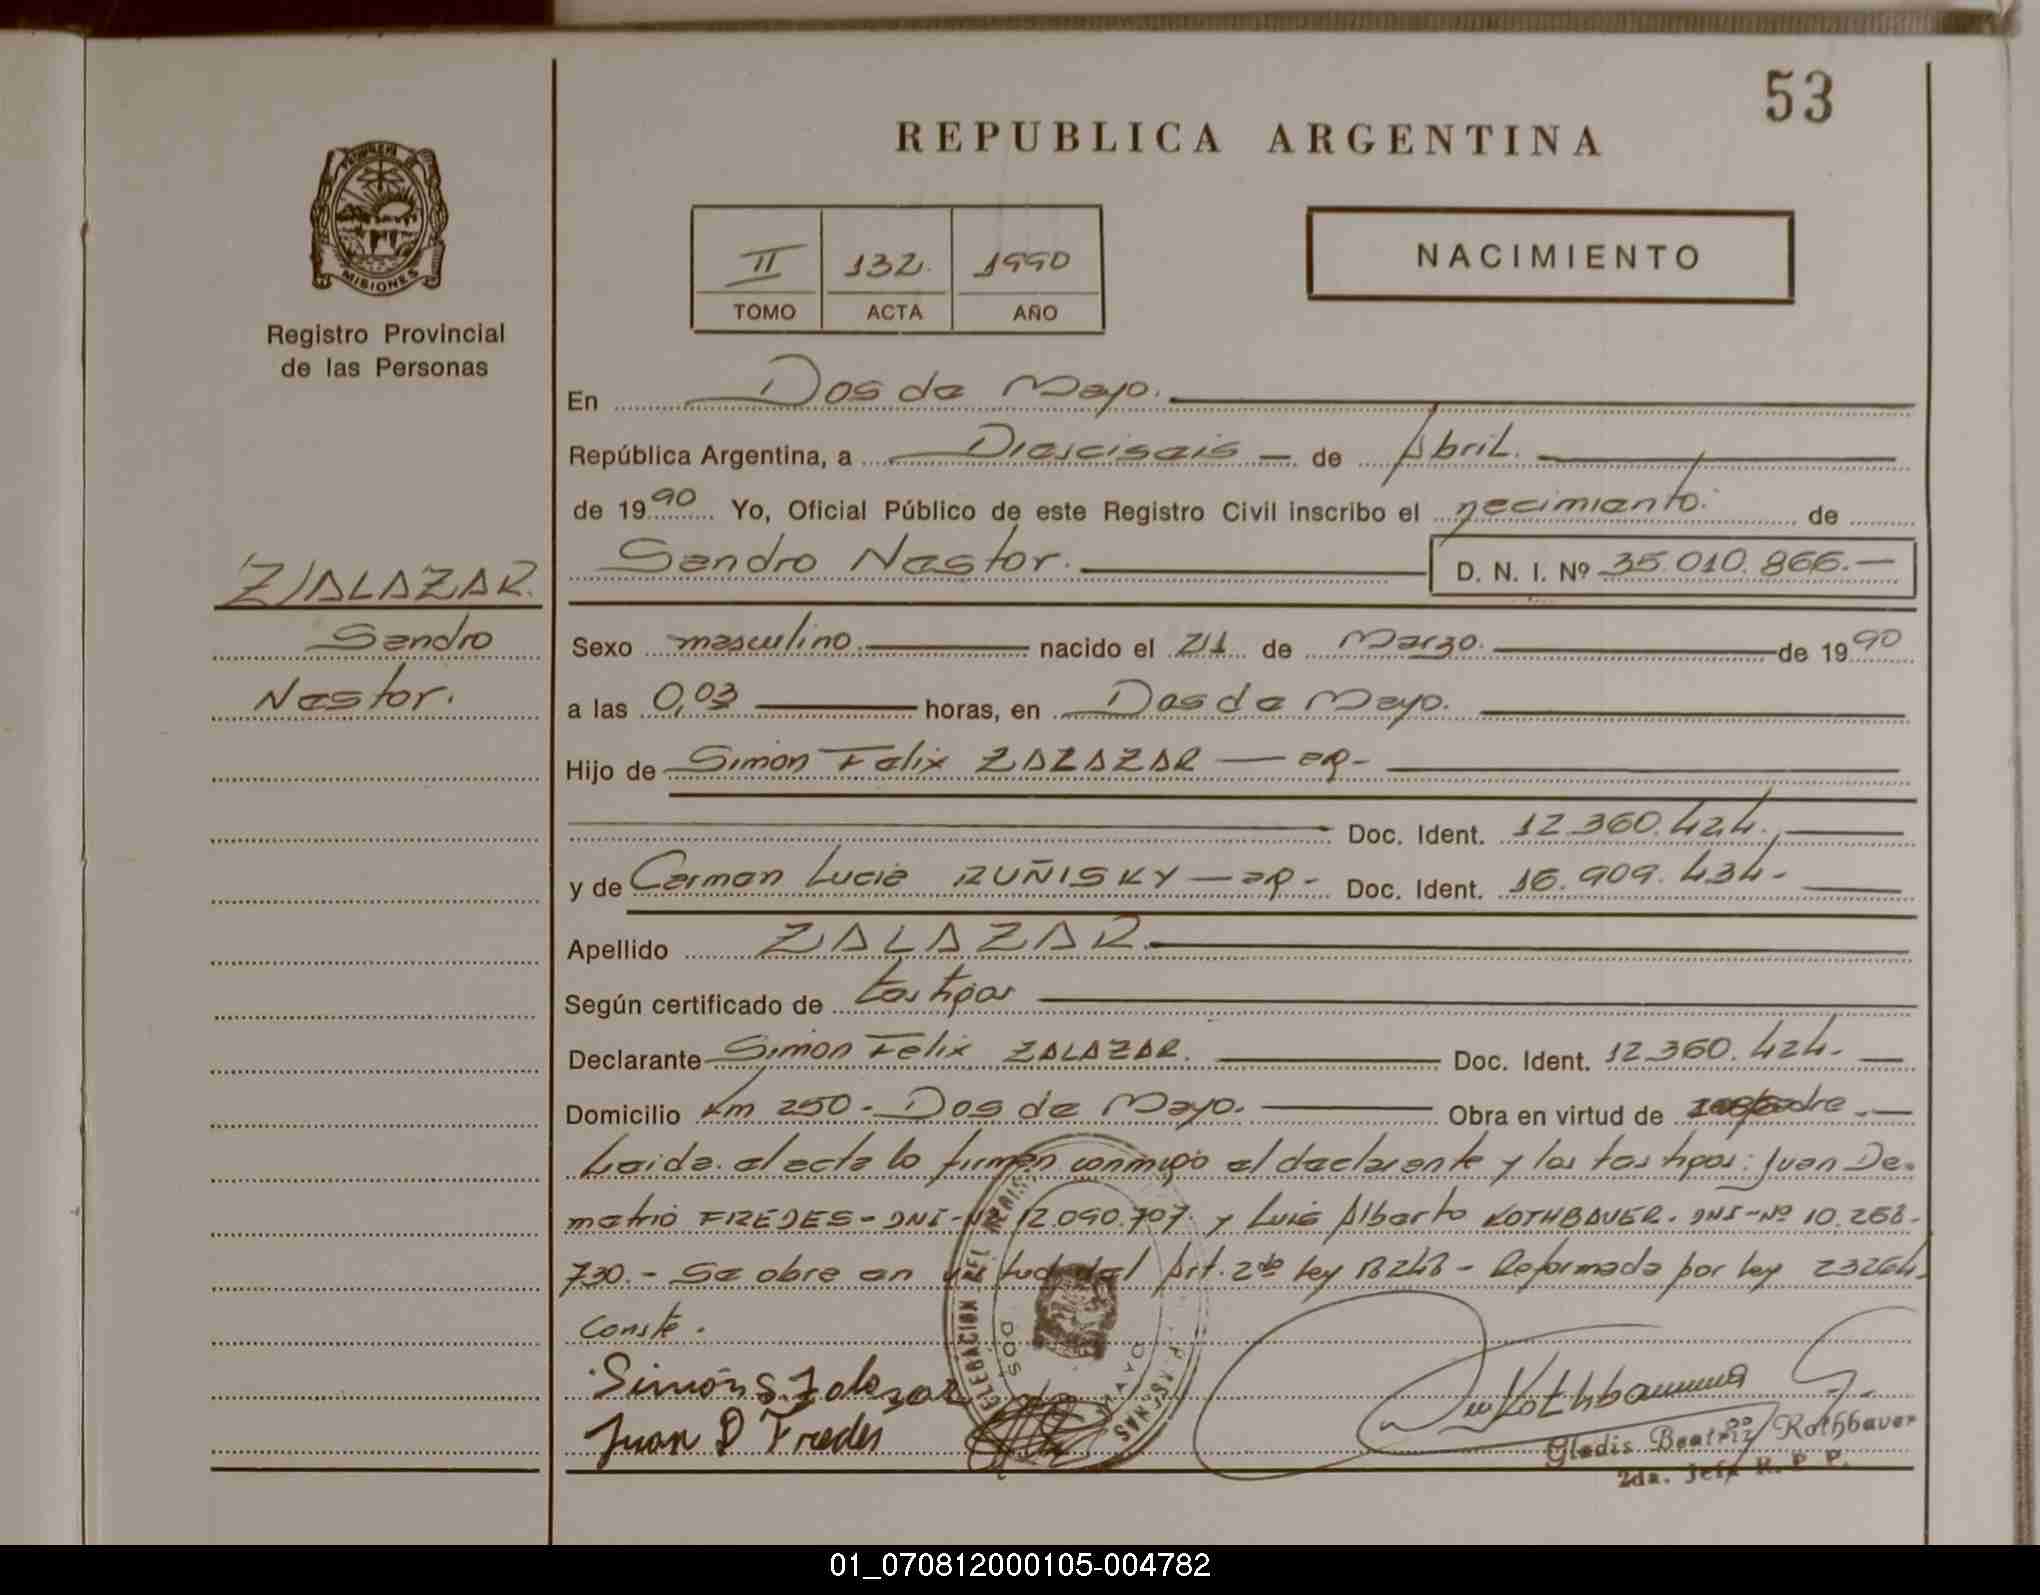 53
REPUBLICA ARGENTINA
MISIONES
Registro Provincial
de las Personas
II 132. 1990
TOMO ACTA AÑO
NACIMIENTO
En Dos de Mayo.
República Argentina, a Dieciseis de Abril.
de 1990 Yo, Oficial Público de este Registro Civil inscribo el necimiento. de
Sandro Nestor. D. N. I. Nº 35.010.866.—
ZALAZAR.
Sandro
Nestor.
Sexo masculino. nacido el 21 de Marzo. de 1990
a las 0,03 horas, en Dos de Mayo.
Hijo de Simon Felix ZALAZAR
Doc. Ident. 12.360.424.
y de Carmen Lucia RUÑISKY Doc. Ident. 16.909.434-
Apellido ZALAZAR.
Según certificado de testigos
Declarante Simon Felix ZALAZAR. Doc. Ident. 12.360.424-
Domicilio Km 250 - Dos de Mayo. Obra en virtud de
Leida el acta lo firman conmigo el declarante y los testigos: Juan De-
metrio FREDES - DNI-Nº 12.090.707 y Luis Alberto ROTHBAUER. DNI-Nº 10.268-
730.- Se obre en virtud del Art. 2do Ley 18248 - Reformada por ley 23264-
Conste.
Simón S. Zalazar
Juan D Fredes
Rothbauer
Gladis Beatriz Rothbauer
2da. Jefa R. P. P.
01_070812000105-004782